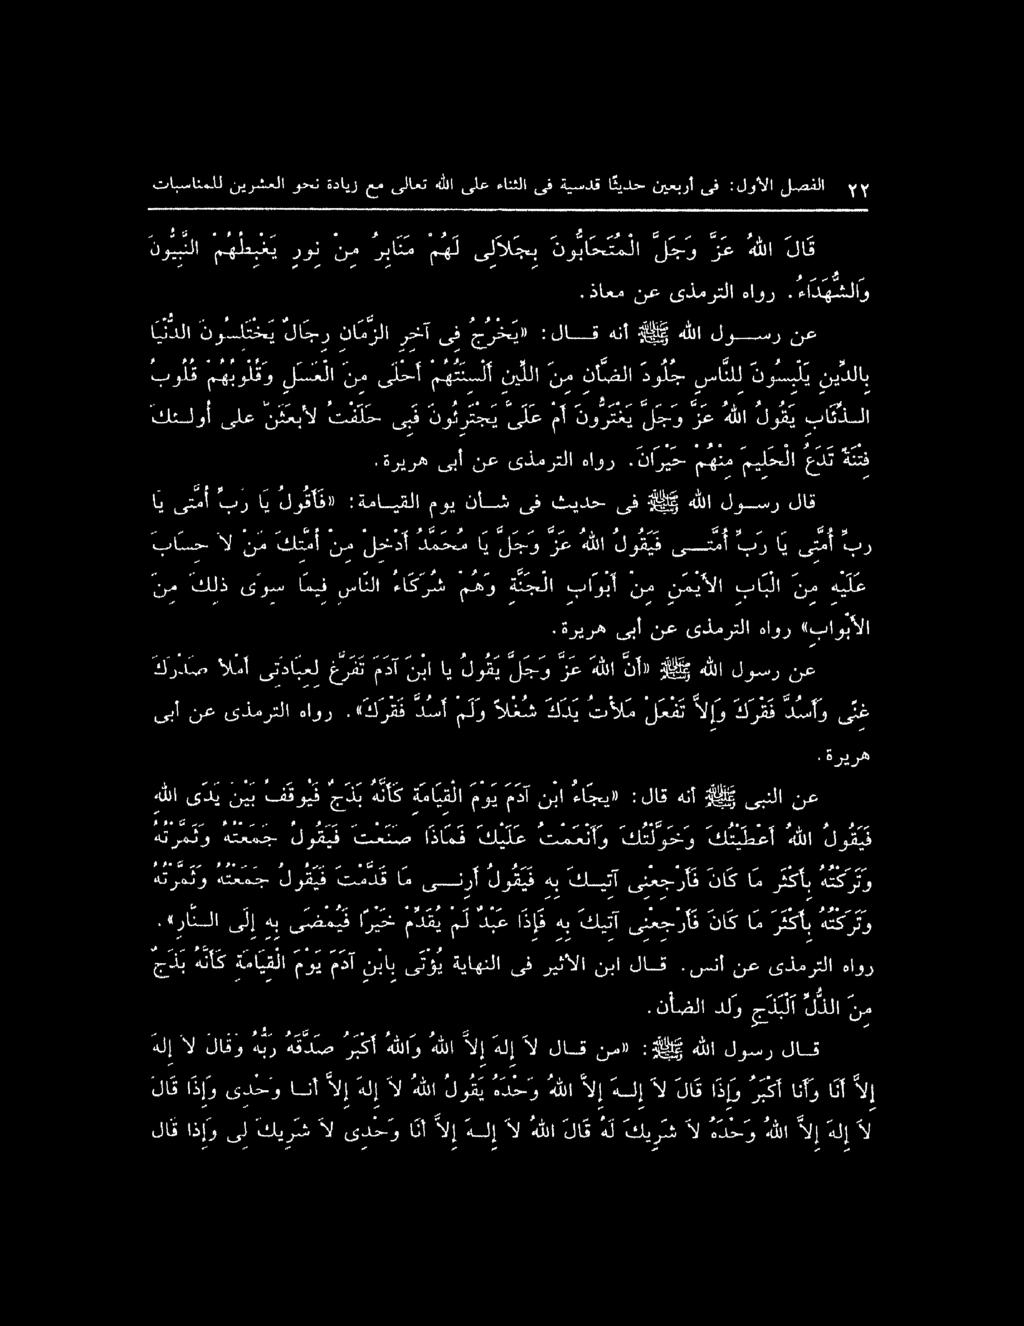 ٢٢ الفصل الأول: فى أربعين حديثًا قدسية فى الثناء على الله تعالى مع زيادة نحو العشرين للمناسبات
قَالَ اللهُ عَزَّ وَجَلَّ الْمُتَحَابُّونَ بِجَلاَلِى لَهُمْ مَنَابِرُ مِنْ نُورٍ يَغْبِطُهُمْ النَّبِيُّونَ
وَالشُّهَدَاءُ. رواه الترمذى عن معاذ.
عن رســول الله ﷺ أنه قــال: «يَخْرُجُ فِى آخِرِ الزَّمَانِ رِجَالٌ يَخْتَلِسُونَ الدُّنْيَا
بِالدِّينِ يَلْبِسُونَ لِلنَّاسِ جُلُودَ الضَّأْنِ مِنَ اللِّينِ أَلْسِنَتُهُمْ أَحْلَى مِنَ الْعَسَلِ وَقُلُوبُهُمْ قُلُوبُ
الــذِّئَابِ يَقُولُ اللهُ عَزَّ وَجَلَّ يَغْتَرُّونَ أَمْ عَلَىَّ يَجْتَرِئُونَ فَبِى حَلَفْتُ لأَبعَثَنَّ على أُولــئِكَ
فِتْنَةً تَدَعُ الْحَلِيمَ مِنْهُمْ حَيْرَانَ. رواه الترمذى عن أبى هريرة.
قال رســول الله ﷺ فى حديث فى شــأن يوم القيــامة: «فَأَقُولُ يَا رَبِّ أُمَّتِى يَا
رَبِّ أُمَّتِى يَا رَبِّ أُمَّتِــى فَيَقُولُ اللهُ عَزَّ وَجَلَّ يَا مُحَمَّدُ أَدْخِلْ مِنْ أُمَّتِكَ مَنْ لاَ حِسَابَ
عَلَيْهِ مِنَ الْبَابِ الأَيْمَنِ مِنْ أَبْوَابِ الْجَنَّةِ وَهُمْ شُرَكَاءُ النَّاسِ فِيمَا سِوَى ذلِكَ مِنَ
الأَبْوَابِ» رواه الترمذى عن أبى هريرة.
عن رسول الله ﷺ «أَنَّ اللهَ عَزَّ وَجَلَّ يَقُولُ يا ابْنَ آدَمَ تَفَرَّغْ لِعِبَادَتِى أَمْلأْ صَدْرَكَ
غِنًى وَأَسُدَّ فَقْرَكَ وَإِلاَّ تَفْعَلْ مَلأْتُ يَدَكَ شُغْلاً وَلَمْ أَسُدَّ فَقْرَكَ». رواه الترمذى عن أبى
هريرة.
عن النبى ﷺ أنه قال: «يجَاءُ ابْنِ آدَمَ يَوْمَ الْقِيَامَةِ كَأَنَّهُ بَذَجٌ فَيُوقَفُ بَيْنَ يَدَى اللهِ
فَيَقُولُ اللهُ أَعْطَيْتُكَ وَخَوَّلْتُكَ وَأَنْعَمْتُ عَلَيْكَ فَمَاذَا صَنَعْتَ فَيَقُولُ جَمَعْتُهُ وَثَمَّرْتُهُ
وَتَرَكْتُهُ بِأَكْثَرِ مَا كَانَ فَأَرْجِعْنِى آتِيــكَ بِهِ فَيَقُولُ أَرِنِــى مَا قَدَّمْتَ فَيَقُولُ جَمَعْتُهُ وَثَمَّرْتُهُ
وَتَرَكْتُهُ بِأَكْثَرَ مَا كَانَ فَأَرْجِعْنِى آتِيكَ بِهِ فَإِذَا عَبْدٌ لَمْ يُقَدِّمْ خَيْرًا فَيُمْضَى بِهِ إِلَى الــنَّارِ».
رواه الترمذى عن أنس. قــال ابن الأثير فى النهاية يُؤْتَى بِابْنِ آدَمَ يَوْمَ الْقِيَامَةِ كَأَنَّهُ بَذَجٌ
مِنَ الذُّلِّ اَلْبَذَجِ وَلد الضأن.
قــال رسول الله ﷺ: «من قــال لاَ إِلهَ إِلاَّ اللهُ وَاللهُ أَكْبَرُ صَدَّقَهُ رَبُّهُ وَقَالَ لاَ إِلهَ
إِلاَّ أَنَا وَأَنا أَكْبَرُ وَإِذَا قَالَ لاَ إِلــهَ إِلاَّ اللهُ وَحْدَهُ يَقُولُ اللهُ لاَ إِلهَ إِلاَّ أَنــا وَحْدِى وَإِذَا قَالَ
لاَ إِلهَ إِلاَّ اللهُ وَحْدَهُ لاَ شَرِيكَ لَهُ قَالَ اللهُ لاَ إِلــهَ إِلاَّ أَنَا وَحْدِى لاَ شَرِيكَ لِى وَإِذا قَال